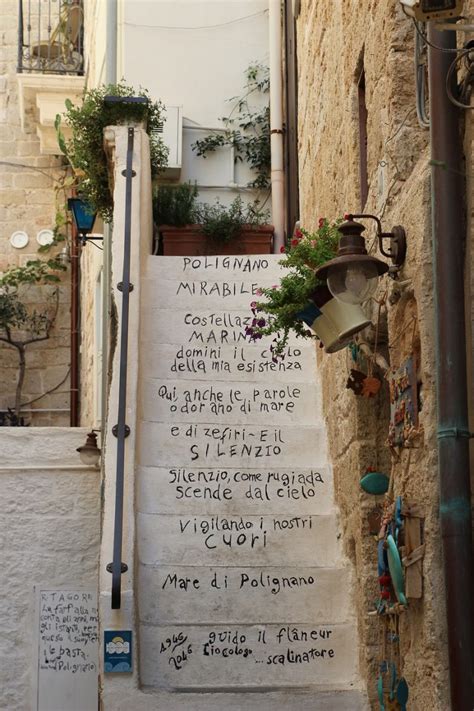 POLIGNANO
MIRABILE
COSTELLAZIO
MARINA
domini il cielo
della mia esistenza
Qui, anche le parole
odorano di mare
e di zefiri-E il
SILENZIO
Silenzio, come rugiada
scende dal cielo
Vigilando i nostri
CUORI
Mare di Polignano
1946 guido il flâneur
2046 ciocologo ...scalinatore
R. TAGORE
La farfalla non
conta gli anni, ma
gli istanti, per
questo il suo
tempo
le basta.
Polignano